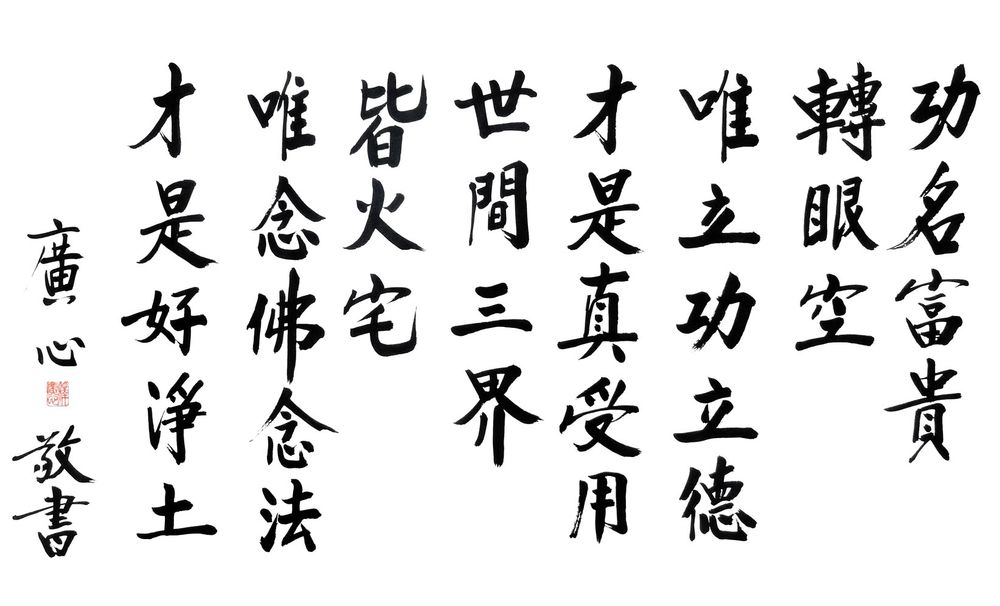 功名富貴
轉眼空
唯立功立德
才是真受用
世間三界
皆火宅
唯念佛念法
才是好淨土
廣心 敬書